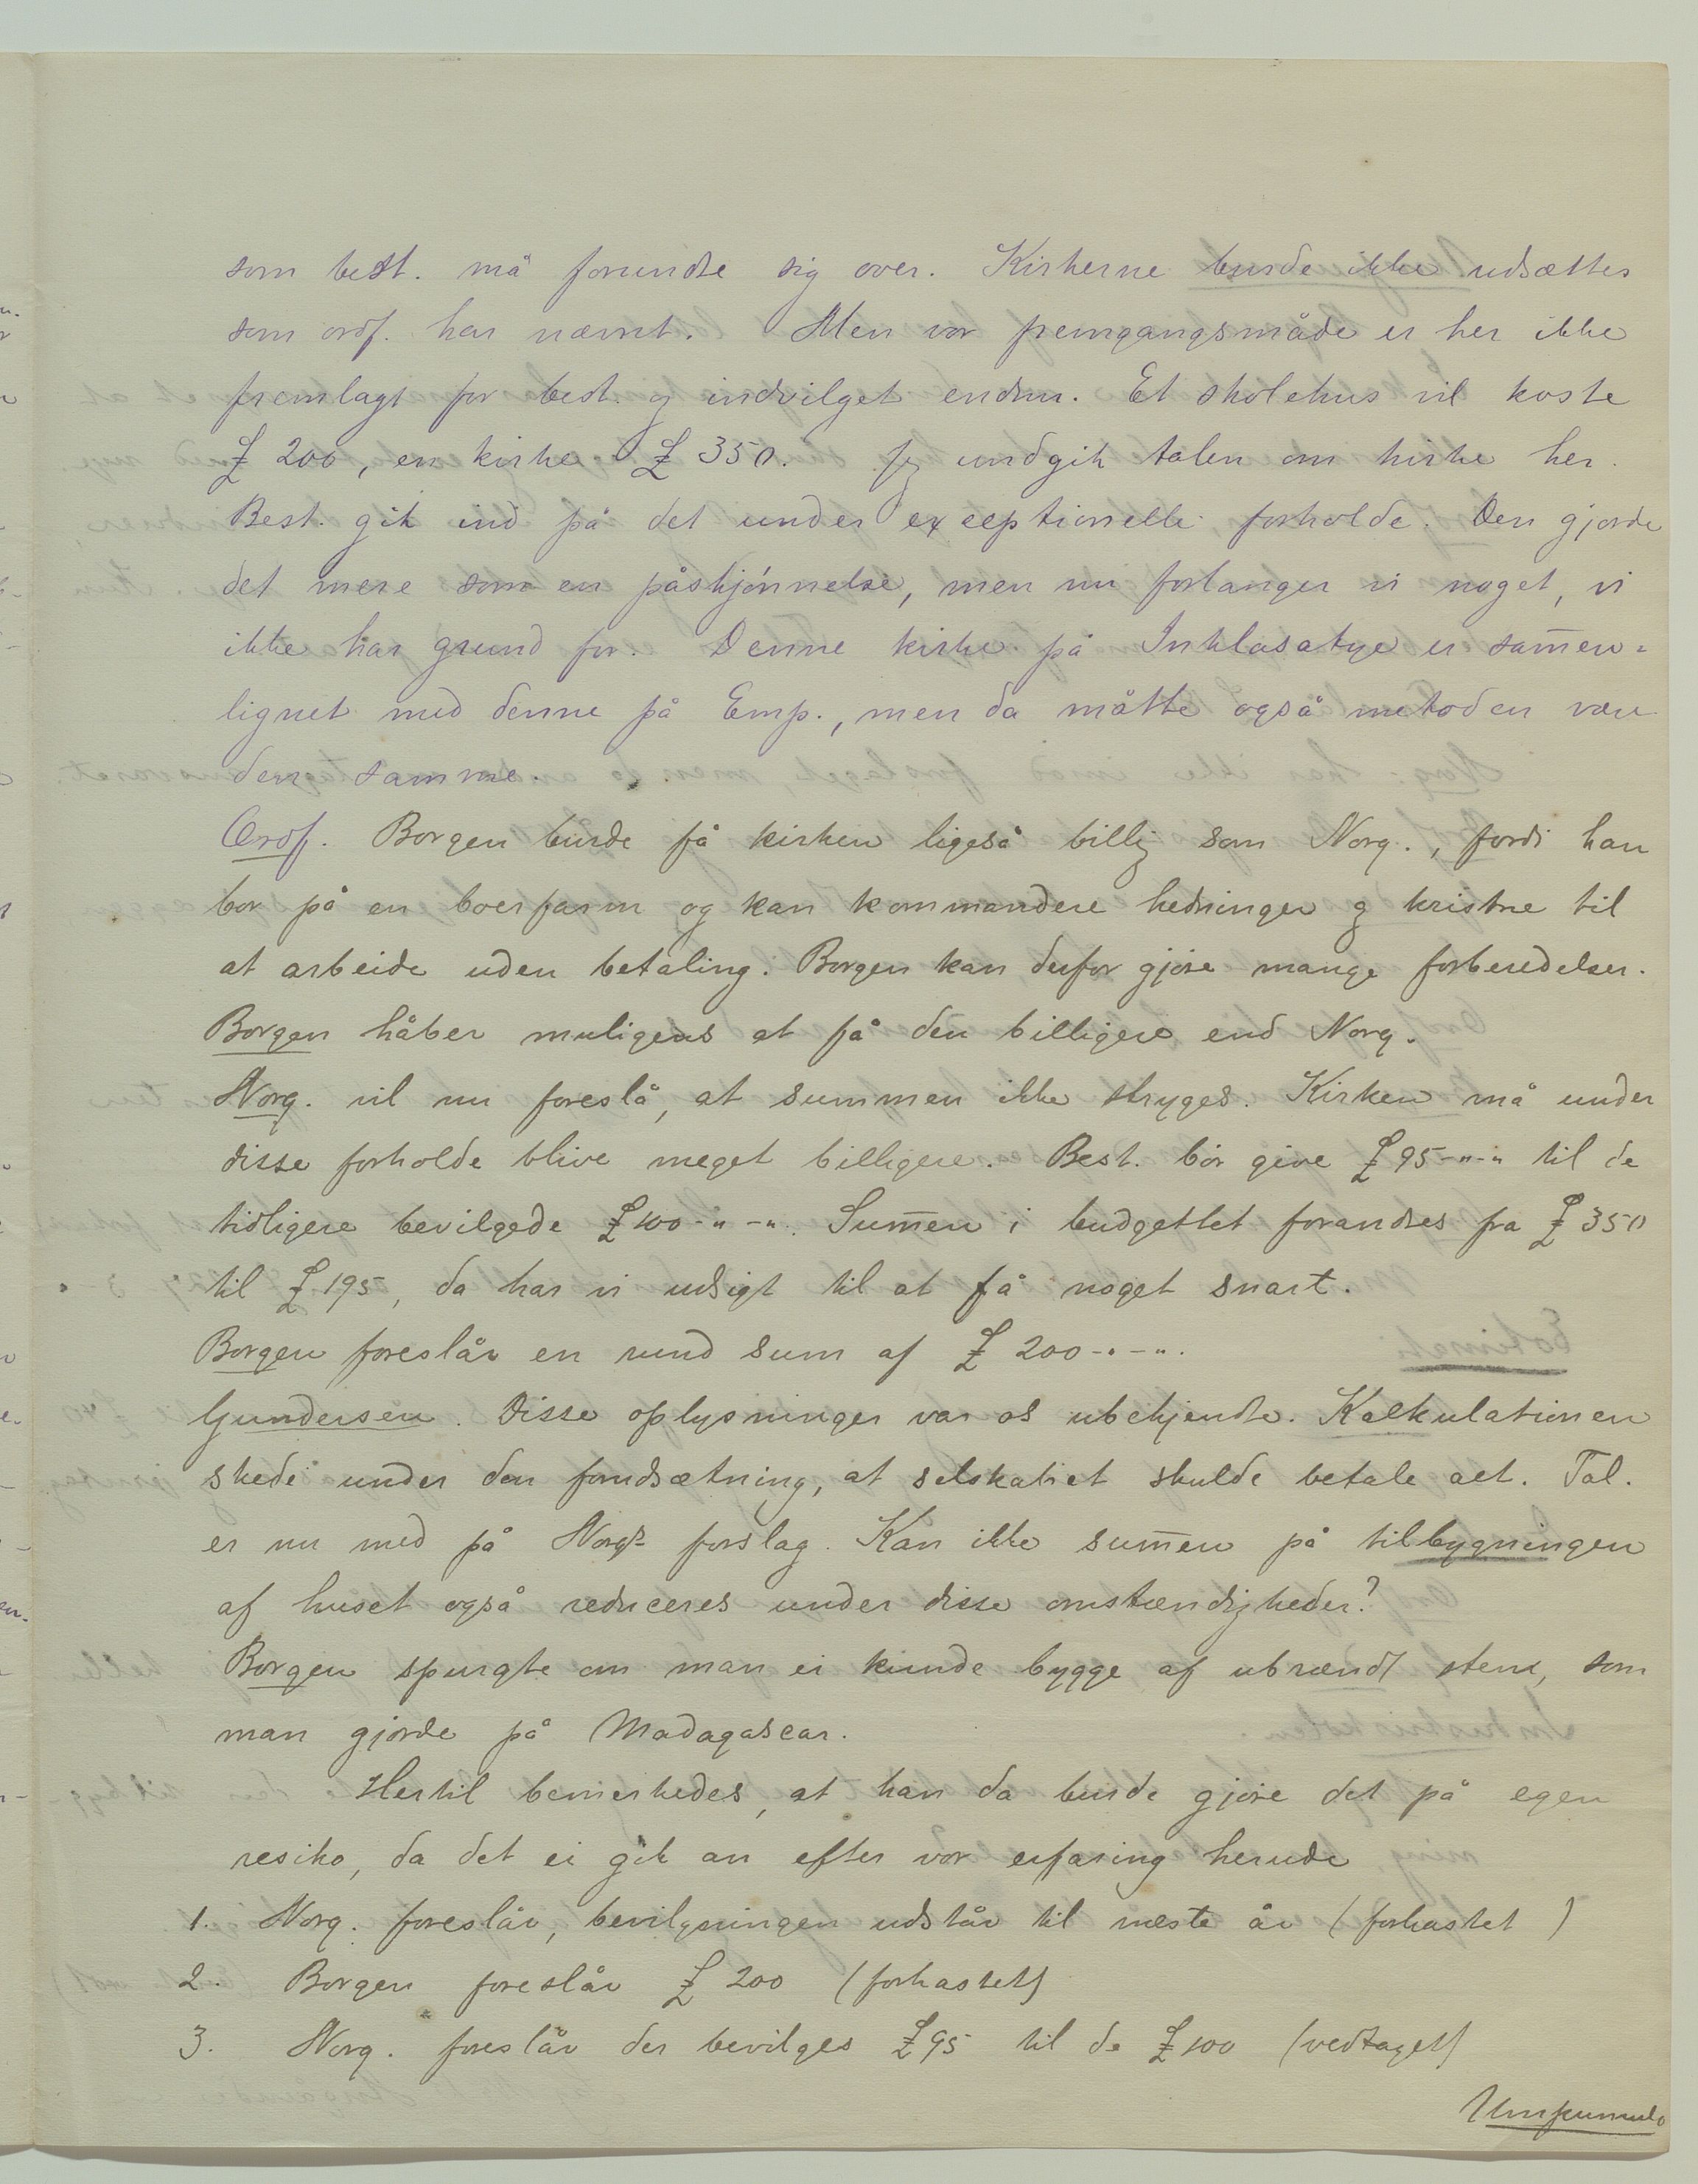 som best. må forundre sig over. Kirkerne burde ikke udsættes
som ordf. har nævnt. Men vor fremgangsmåde er her ikke
fremlagt for best. og indvilget endnu. Et skolehus vil koste
£ 200, en kirke £ 350. Jeg undgik talen om kirke her.
Best. gik ind på det under exceptionelle forholde. Den gjorde
det mere som en påskjønnelse, men nu forlanger vi noget, vi
ikke har grund for. Denne kirke på Inhlasatye er sam̄en=
lignet med denne på Emp., men da måtte også metoden være
den samme.
Ordf. Borgen burde få kirken ligeså billig som Norg., fordi han
bor på en boerfarm og kan kommandere hedninger og kristne til
at arbeide uden betaling. Borgen kan derfor gjøre mange forberedelser.
Borgen håber muligens at få den billigere end Norg.
Norg. vil nu foreslå, at summen ikke stryges. Kirken må under
disse forholde blive meget billigere. Best. bør give £ 95-"-" til de
tidligere bevilgede £ 100-"-". Sum̄en i budgettet forandres fra £ 350
til £ 195, da har vi udsigt til at få noget snart.
Borgen foreslår en rund sum af £ 200-"-".
Gundersen. Disse oplysninger var os ubekjendte. Kalkulationen
skede under den forudsætning, at selskabet skulde betale alt. Tal.
er nu med på Norgs forslag. Kan ikke sum̄en på tilbygningen
af huset også reduceres under disse omstændigheder?
Borgen spurgte om man ei kunde bygge af ubrændt sten, som
man gjorde på Madagascar.
Hertil bemerkedes, at han da burde gjøre det på egen
resiko, da det ei gik an efter vor erfaring herude
1. Norg. foreslår, bevilgningen udstår til næste år (forkastet)
2. Borgen foreslår £ 200 (forkastet)
3. Norg. foreslår der bevilges £ 95 til de £ 100 (vedtaget)
Umpumulo